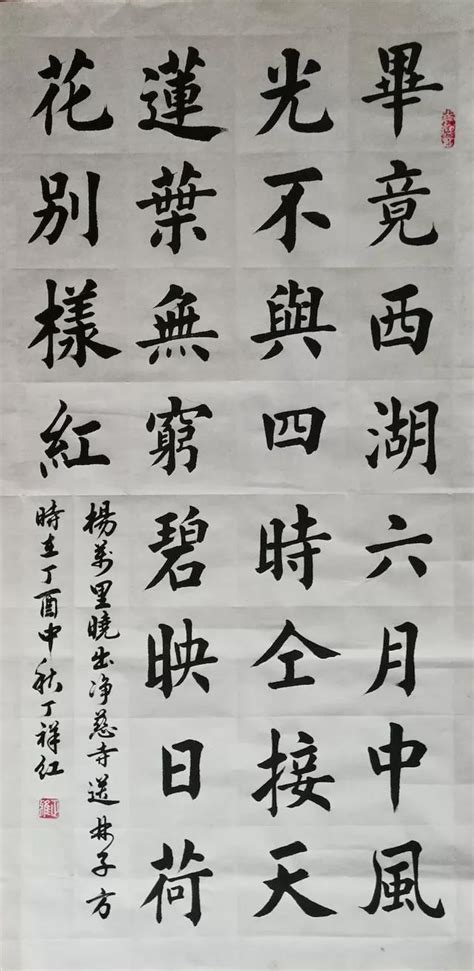 畢竟西湖六月中風
光不與四時仝接天
蓮葉無窮碧映日荷
花别樣紅
楊萬里曉出净慈寺送林子方
時在丁酉中秋丁祥红